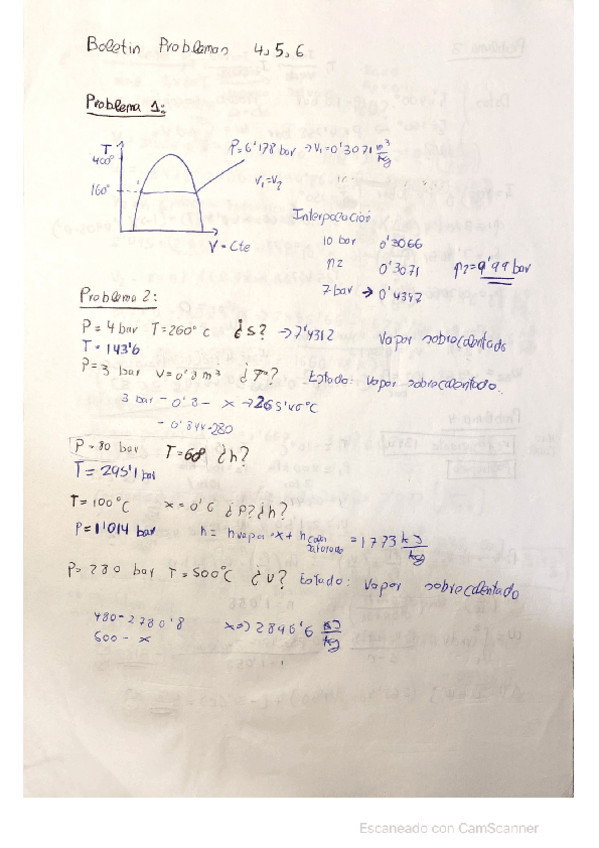 Boletin Problemas 4, 5, 6
Problema 1:
T
400°
160°
P=6'178 bar → v₁=0'3071 m³/kg
v₁=v₂
V=Cte
Interpolación
10 bar 0'3066
p2 0'3071 p2=9'99 bar
7 bar → 0'4347
Problema 2:
P=4 bar T=260°C ¿s? → 7'4312 Vapor sobrecalentado
T=143'6
P=3 bar v=0'8 m³ ¿T? Estado: vapor sobrecalentado
3 bar - 0'8 - x → 265'40°C
- 0'844-280
P=80 bar T=68 ¿h?
T=295'1 bar
T=100°C x=0'6 ¿P? ¿h?
P=1'014 bar h= hvapor·x + h = 1773 kJ/kg
P=280 bar T=500°C ¿u? Estado: vapor sobrecalentado
480-2780'8 x=> 2896'6 kJ/kg
500 - x
Escaneado con CamScanner